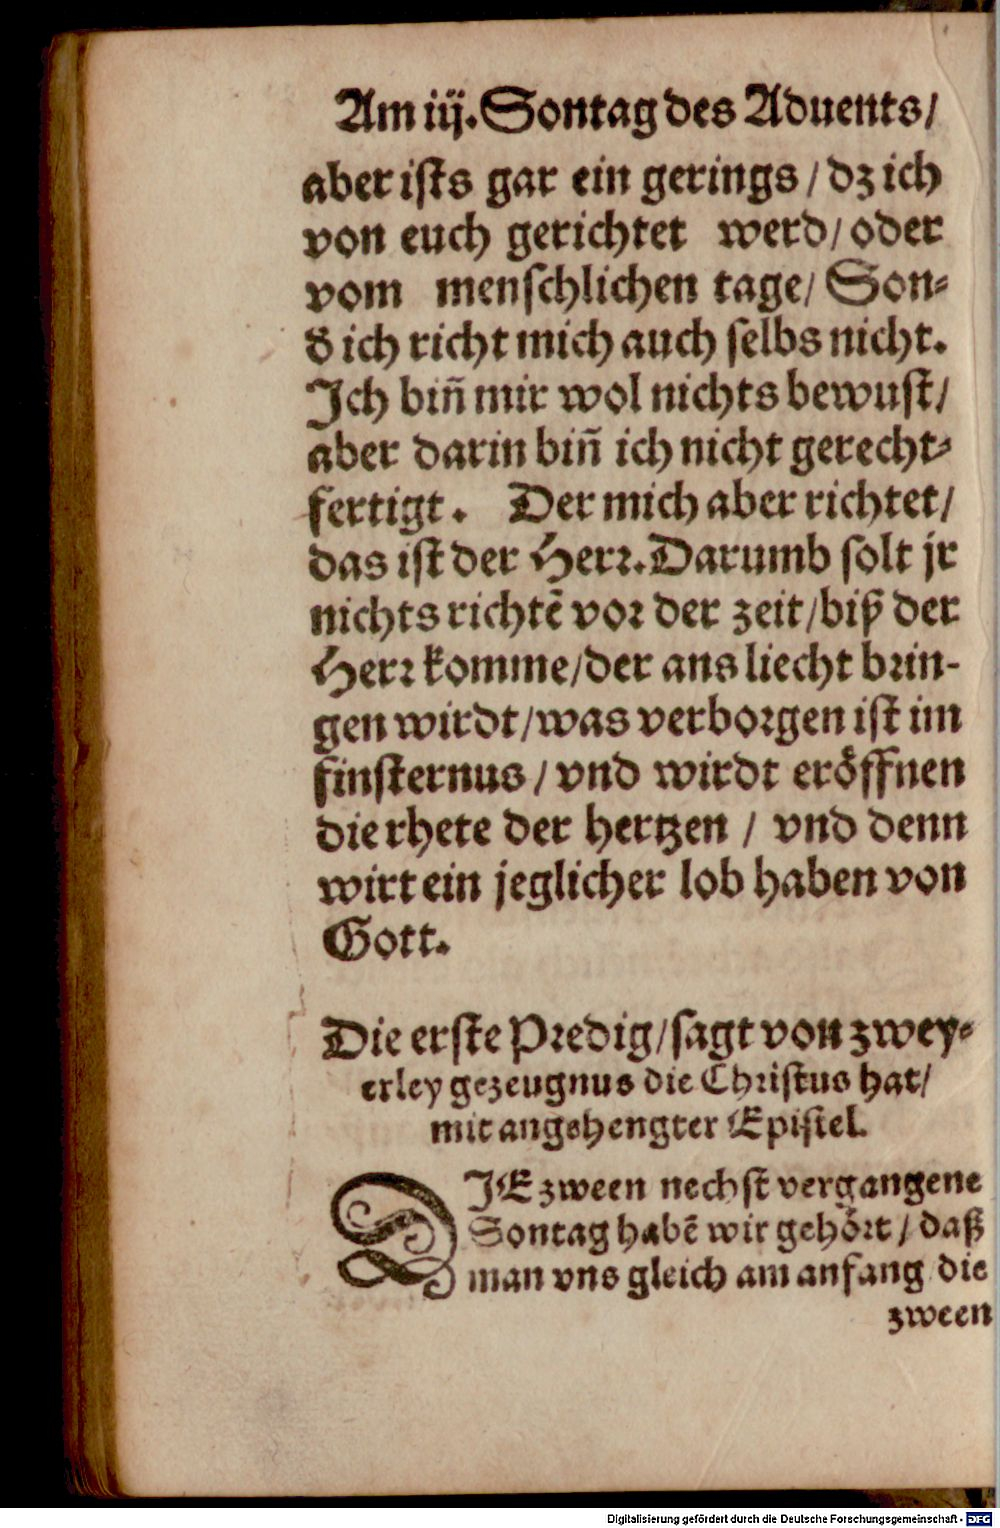 Am iij. Sontag des Aduents/
aber iſts gar ein gerings / dz ich
von euch gerichtet werd / oder
vom menſchlichen tage / Son⸗
d̕ ich richt mich auch ſelbs nicht.
Ich biñ mir wol nichts bewuſt /
aber darin biñ ich nicht gerecht⸗
fertigt. Der mich aber richtet /
das iſt der Herꝛ. Darumb ſolt jr
nichts richtē voꝛ der zeit / biß der
Herꝛ komme / der ans liecht bꝛin-
gen wirdt / was verboꝛgen iſt im
finſternus / vnd wirdt eröffnen
die rhete der hertzen / vnd denn
wirt ein jeglicher lob haben von
Gott.
Die erſte Pꝛedig / ſagt von zwey⸗
erley gezeugnus die Chꝛiſtus hat /
mit angehengter Epiſtel.
DIE zween nechſt vergangene
Sontag habē wir gehöꝛt / daß
man vns gleich am anfang die
zween
Digitalisierung gefördert durch die Deutsche Forschungsgemeinschaft - DFG